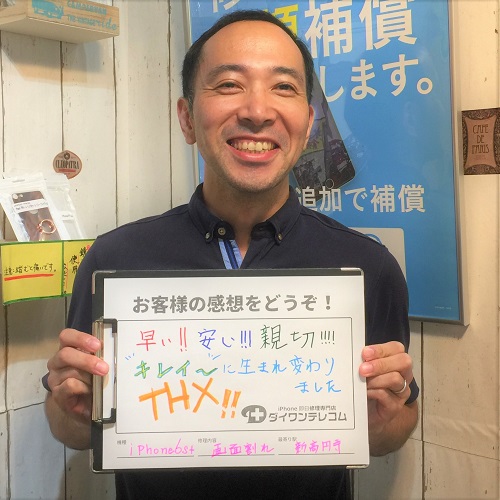 額補償
します。
追加で補償
CAFE
DE
PARIS
CLEOPATRA
お客様の感想をどうぞ！
早い!! 安い!!! 親切!!!!
"キレイ〜"に生まれ変わり
ました
THX!!
iPhone 即日修理専門店
ダイワンテレコム
機種 iPhone6s+ 修理内容 画面割れ 最寄り駅 新高円寺